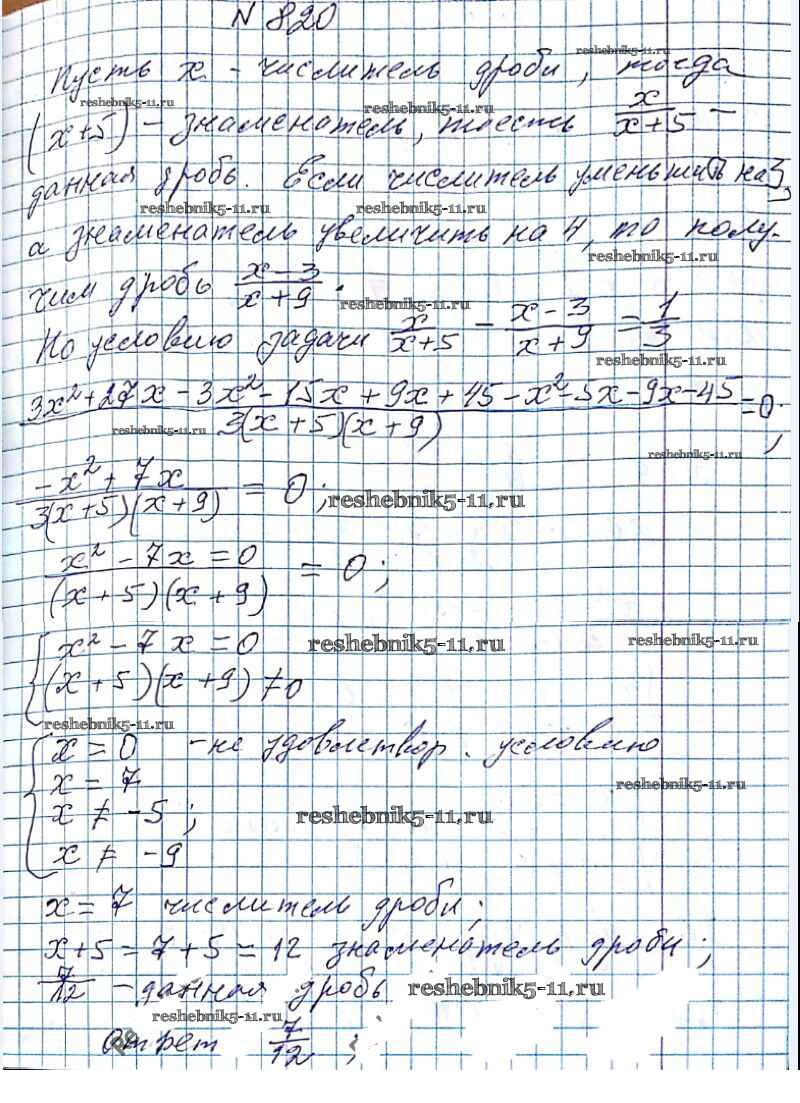 N 820
reshebnik5-11.ru
Пусть x - числитель дроби, тогда
reshebnik5-11.ru reshebnik5-11.ru
(x+5) - знаменатель, тоесть x/(x+5) -
данная дробь. Если числитель уменьшить на 3,
reshebnik5-11.ru reshebnik5-11.ru
а знаменатель увеличить на 4, то полу-
reshebnik5-11.ru
чим дробь (x-3)/(x+9).
reshebnik5-11.ru
По условию задачи x/(x+5) - (x-3)/(x+9) = 1/3
reshebnik5-11.ru
(3x²+27x-3x²-15x+9x+45-x²-5x-9x-45)/(3(x+5)(x+9)) = 0;
reshebnik5-11.ru
reshebnik5-11.ru
(-x²+7x)/(3(x+5)(x+9)) = 0;
reshebnik5-11.ru
(x²-7x=0)/((x+5)(x+9)) = 0;
x²-7x=0
reshebnik5-11.ru reshebnik5-11.ru
(x+5)(x+9)≠0
reshebnik5-11.ru
x=0 - не удовлетвор. условию
x=7
reshebnik5-11.ru
x≠-5;
reshebnik5-11.ru
x≠-9
x=7 числитель дроби;
x+5=7+5=12 знаменатель дроби;
7/12 - данная дробь
reshebnik5-11.ru
reshebnik5-11.ru
Ответ 7/12;